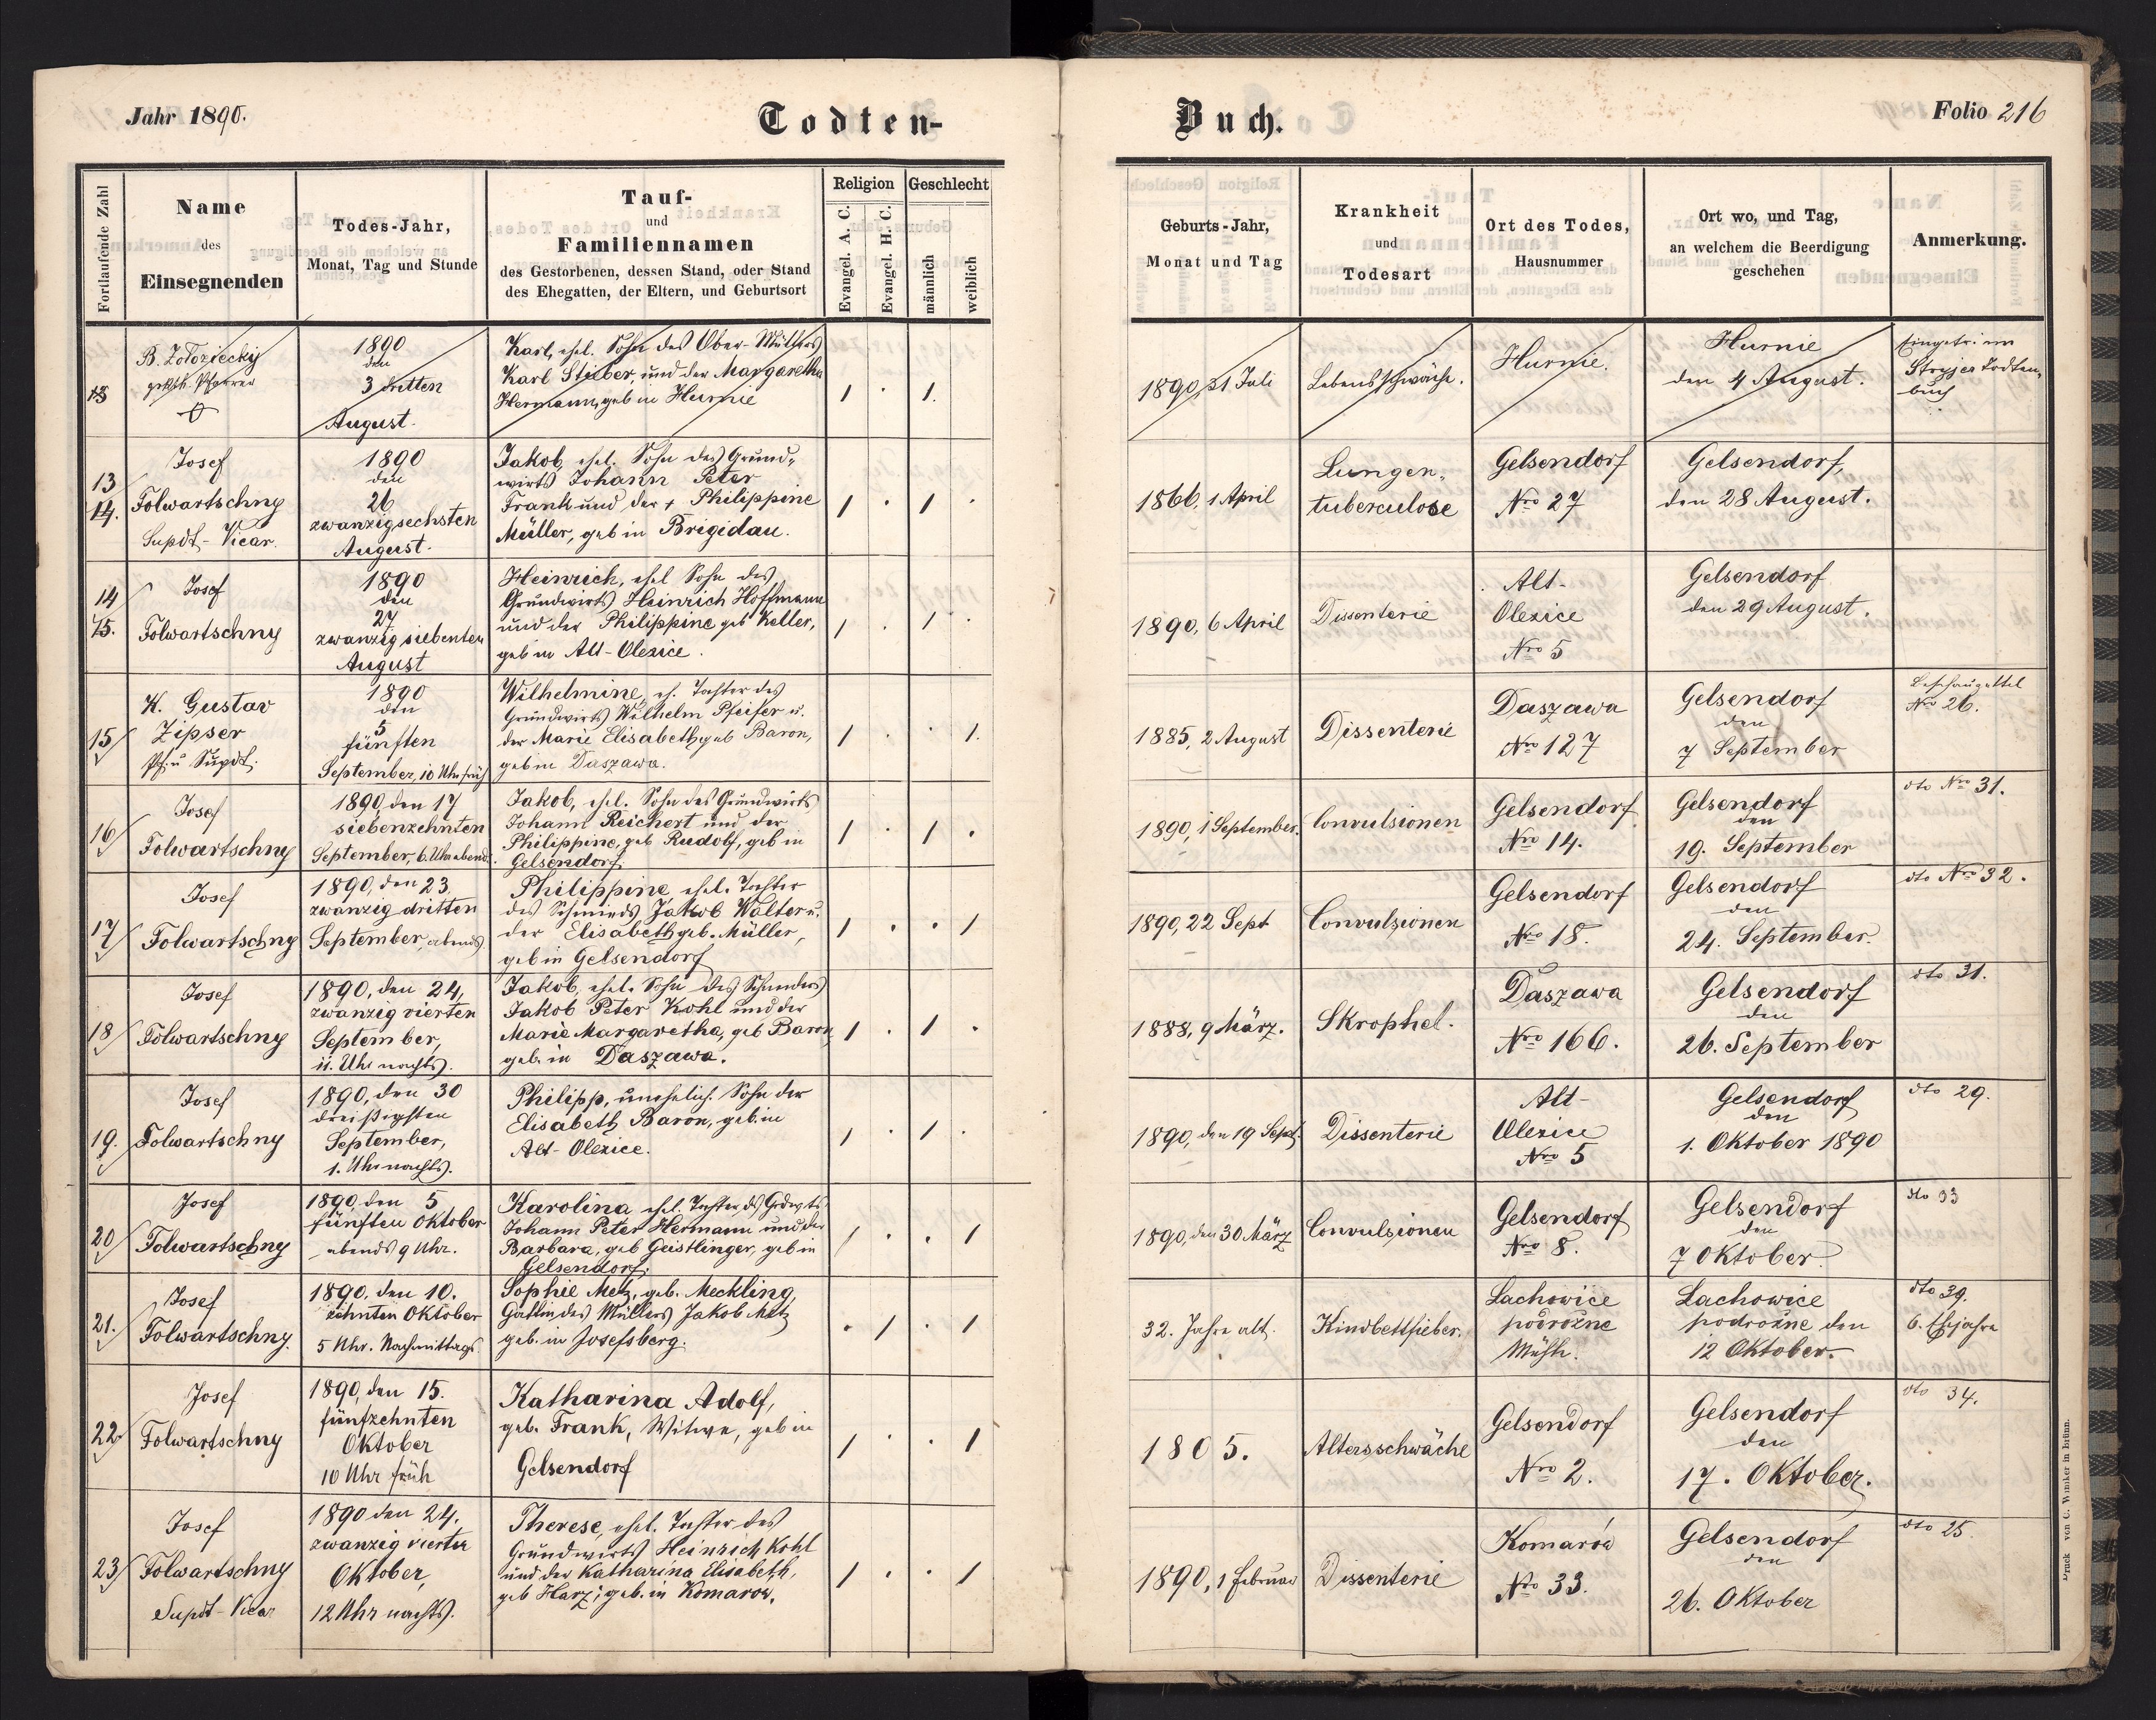 Jahr 1890.
Todten-
Buch.
Folio 216
Fortlaufende Zahl
Name
des
Einsegnenden
Todes-Jahr,
Monat, Tag und Stunde
Tauf-
und
Familiennamen
des Gestorbenen, dessen Stand, oder Stand
des Ehegatten, der Eltern, und Geburtsort
Religion
Evangel. A. C.
Evangel. H. C.
Geschlecht
männlich
weiblich
Geburts-Jahr,
Monat und Tag
Krankheit
und
Todesart
Ort des Todes,
Hausnummer
Ort wo, und Tag,
an welchem die Beerdigung
geschehen
Anmerkung.
Pfarrer
1890
den
3 dritten
August.
Karl, ehel. Sohn des Ober-Müllers
Karl Stieber, und der Margaretha
Hermann, geb in Hurnie
1890, 31 Juli
Lebensschwäche.
Hurnie.
Hurnie
den 4 August.
Eingetr. im
Stryjer Todten-
buch
13
14.
Josef
Folwartschny
Supdt-Vicar.
1890
den
26
zwanzigsechsten
August.
Jakob, ehel. Sohn des Grund-
wirts Johann Peter
Frank und der + Philippine
Müller, geb in Brigidau.
1866, 1 April
Lungen-
tuberculose
Gelsendorf
Nro 27
Gelsendorf,
den 28 August.
14
15.
Josef
Folwartschny
1890
den
27
zwanzig siebenten
August
Heinrich, ehel Sohn des
Grundwirts Heinrich Hoffmann
und der Philippine geb Keller,
geb in Alt-Olexice.
1890, 6 April
Dissenterie
Alt-
Olexice
Nro 5
Gelsendorf
den 29 August.
15
K. Gustav
Zipser
Pf. u Supdt.
1890
den
5
fünften
September, 10 Uhr früh
Wilhelmine, eh. Tochter des
Grundwirts Wilhelm Pfeifer u.
der Marie Elisabeth, geb Baron,
geb in Daszawa.
1885, 2 August
Dissenterie
Daszawa
Nro 127
Gelsendorf
den
7 September
Beschauzettel
Nro 26.
16
Josef
Folwartschny
1890, den 17
siebenzehnten
September, 6 Uhr abend.
Jakob, ehel. Sohn des Grundwirts
Johann Reichert und der
Philippine, geb Rudolf, geb in
Gelsendorf.
1890, 1 September.
Convulsionen
Gelsendorf
Nro 14.
Gelsendorf
den
19. September
dto Nro 31.
17
Josef
Folwartschny
1890, den 23.
zwanzig dritten
September, abends
Philippine, ehel. Tochter
des Schmieds Jakob Walter u.
der Elisabeth geb. Müller,
geb in Gelsendorf
1890, 22 Sept
Convulsionen
Gelsendorf
Nro 18.
Gelsendorf
den
24. September.
dto Nro 32.
18
Josef
Folwartschny
1890, den 24,
zwanzig vierten
September,
11. Uhr nachts.
Jakob, ehel. Sohn des
Jakob Peter Kohl und der
Marie Margaretha, geb Baron,
geb. in Daszawa.
1888, 9 März.
Skrophel.
Daszawa
Nro 166.
Gelsendorf
den
26. September
dto 31.
19.
Josef
Folwartschny
1890, den 30
dreißigsten
September,
1. Uhr nachts.
Philipp, unehelich. Sohn der
Elisabeth Baron, geb. in
Alt-Olexice.
1890, den 19 Sept.
Dissenterie
Alt-
Olexice
Nro 5
Gelsendorf
den
1. Oktober 1890
dto 29.
20
Josef
Folwartschny
1890, den 5
fünften Oktober
abends 9 Uhr.
Karolina ehel. Tochter ds Grdwrts
Johann Peter Hermann und der
Barbara, geb Geistlinger, geb in
Gelsendorf.
1890, den 30 März
Convulsionen
Gelsendorf
Nro 8.
Gelsendorf
den
7 Oktober.
dto 33
21.
Josef
Folwartschny.
1890. den 10.
zehnten Oktober
5 Uhr. Nachmittags.
Sophie Metz, geb. Meckling,
Gattin des Müllers Jakob Metz
geb. in Josefsberg.
32. Jahre alt.
Kindbettfieber.
Lachowice
podrożne
Mühle.
Lachowice
podrożne den
12 Oktober.
dto 39.
6. Ehejahre
22.
Josef
Folwartschny
1890, den 15.
fünfzehnten
Oktober
10 Uhr früh
Katharina Adolf,
geb. Frank, Witwe, geb in
Gelsendorf
1805.
Altersschwäche
Gelsendorf
Nro 2.
Gelsendorf
den
17. Oktober.
dto 34.
23
Josef
Folwartschny
Supdt-Vicar
1890 den 24.
zwanzig vierten
Oktober,
12 Uhr nachts.
Therese, ehel. Tochter des
Grundwirts Heinrich Kohl
und der Katharina Elisabeth,
geb Harz; geb. in Komarow.
1890, 1 Februar
Dissenterie
Komarów
Nro 33.
Gelsendorf
den
26. Oktober
dto 25.
Druck von C. Winiker in Brünn.